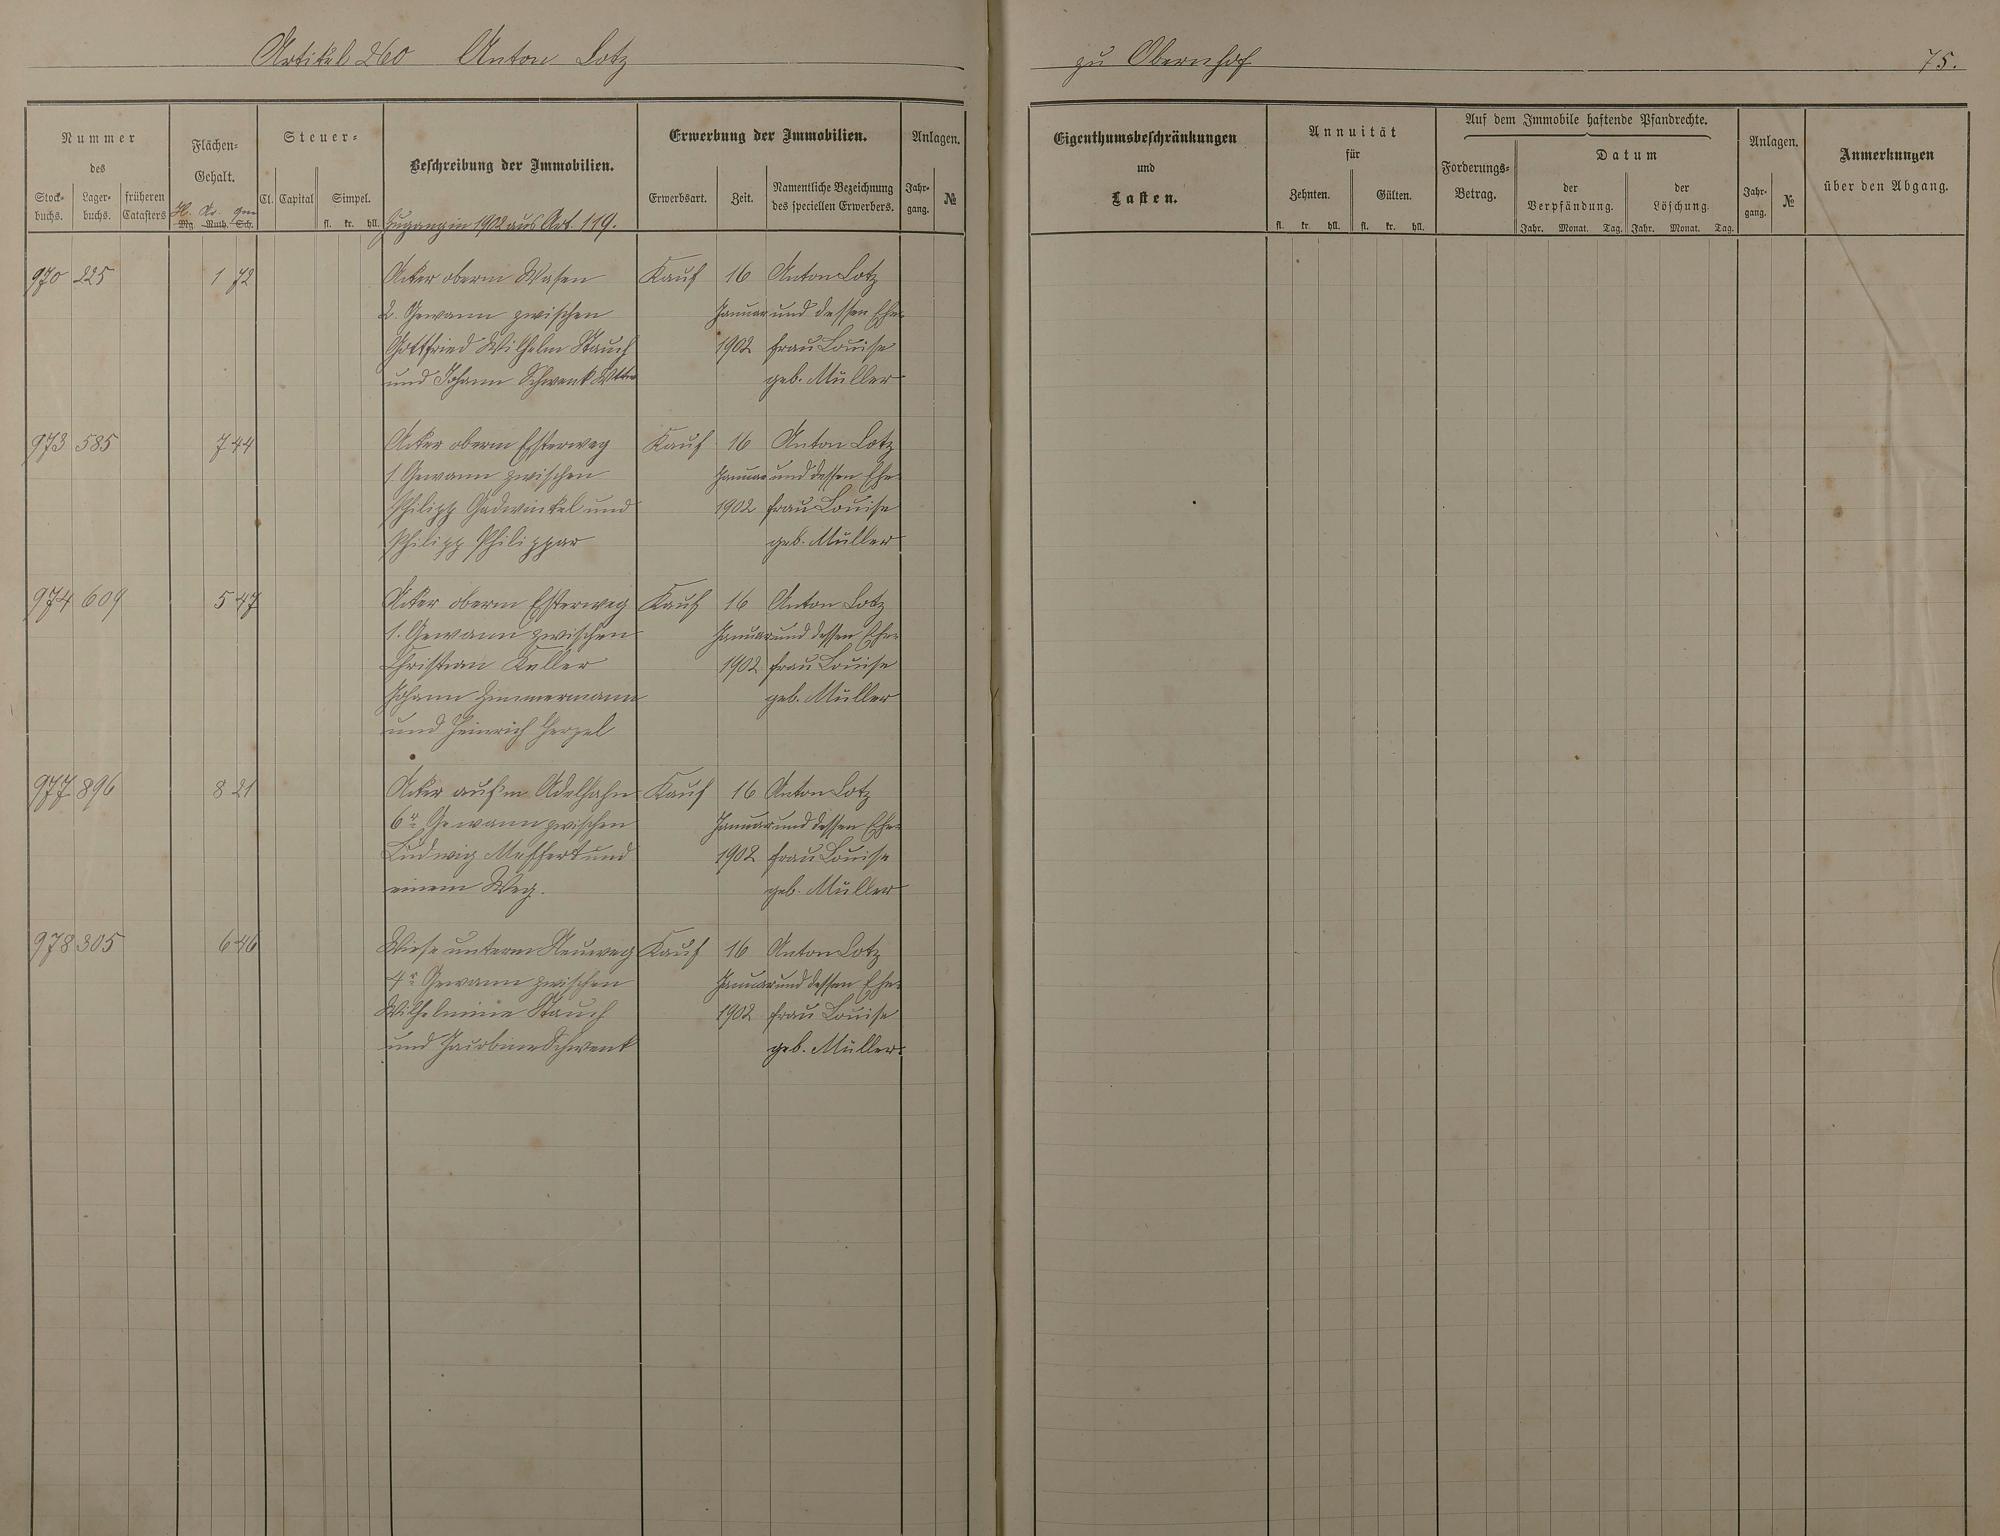 Artikel 260 Anton Lotz
Nummer
des
Stock-
buchs.
Lager-
buchs.
früheren
Catasters
Flächen-
Gehalt.
H. Ar. qm
Mg. Ruth. Sch.
Steuer-
Cl. Capital Simpel.
fl. kr. hll.
Beschreibung der Immobilien.
Zugang in 1902 aus Art. 119.
Erwerbung der Immobilien.
Erwerbsart. Zeit.
Namentliche Bezeichnung
des speciellen Erwerbers.
Anlagen.
Jahr-
gang.
№
970 225 1 72 Acker oberm Wasen Kauf 16 Anton Lotz
2. Gewann zwischen Januar und dessen Ehe-
Gottfried Wilhelm Stauch 1902 frau Louise
und Johann Schwenk Wttw geb. Müller
973 585 7 44 Acker oberm Esterweg Kauf 16 Anton Lotz
1. Gewann zwischen Januar und dessen Ehe-
Philipp Gadwinkel und 1902 frau Louise
Philipp Philippar geb. Müller
974 609 5 47 Acker oberm Esterweg Kauf 16 Anton Lotz
1. Gewann zwischen Januar und dessen Ehe-
Christian Keller 1902 frau Louise
Johann Zimmermann geb. Müller
und Heinrich Herzel
977 896 8 21 Acker auf'm Adelhahn Kauf 16 Anton Lotz
6r Gewann zwischen Januar und dessen Ehe-
Ludwig Meffert und 1902 frau Louise
einem Weg. geb. Müller
978 305 6 46 Wiese unterm Neuweg Kauf 16 Anton Lotz
4r Gewann zwischen Januar und dessen Ehe-
Wilhelmine Stauch 1902 frau Louise
und Jacobine Schwenk geb. Müller.
zu Obernhof 75.
Eigenthumsbeschränkungen
und
Lasten.
Annuität
für
Zehnten. Gülten.
fl. kr. hll. fl. kr. hll.
Auf dem Immobile haftende Pfandrechte.
Forderungs-
Betrag.
Datum
der
Verpfändung.
der
Löschung.
Jahr. Monat. Tag. Jahr. Monat. Tag.
Anlagen.
Jahr-
gang.
№
Anmerkungen
über den Abgang.